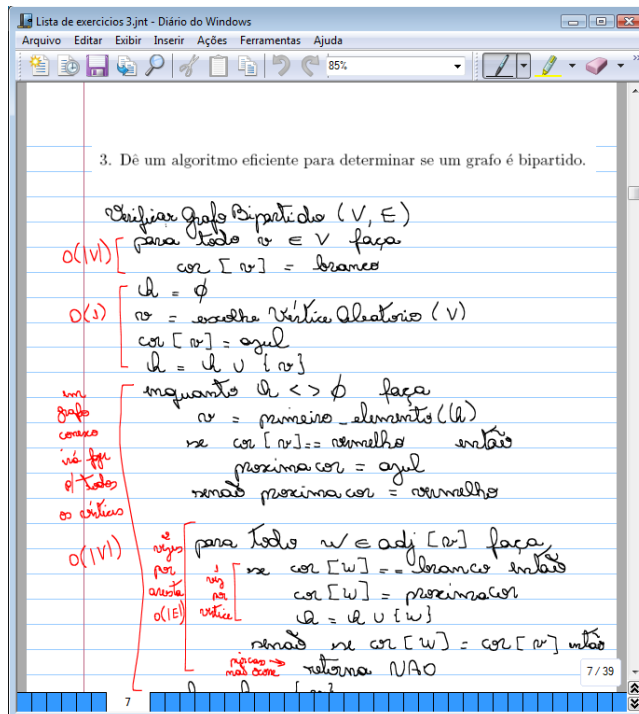 Lista de exercicios 3.jnt - Diário do Windows
Arquivo Editar Exibir Inserir Ações Ferramentas Ajuda
85%
3. Dê um algoritmo eficiente para determinar se um grafo é bipartido.
Verificar Grafo Bipartido (V, E)
O(|V|) para todo v ∈ V faça
cor [v] = branco
h = ∅
O(1) v = escolhe Vértice Aleatorio (V)
cor [v] = azul
h = h ∪ {v}
enquanto h <> ∅ faça
v = primeiro_elemento(h)
se cor [v] == vermelho então
proxima cor = azul
senão proxima cor = vermelho
em
grafo
conexo
irá
p/ todos
os vértices
O(|V|)
para todo w ∈ adj [v] faça
2
vezes
por
aresta
O(|E|)
1
vez
por
vértice
se cor [w] == branco então
cor [w] = proximacor
h = h ∪ {w}
senão se cor [w] = cor [v] então
não ocorre → retorna NAO
7 / 39
7